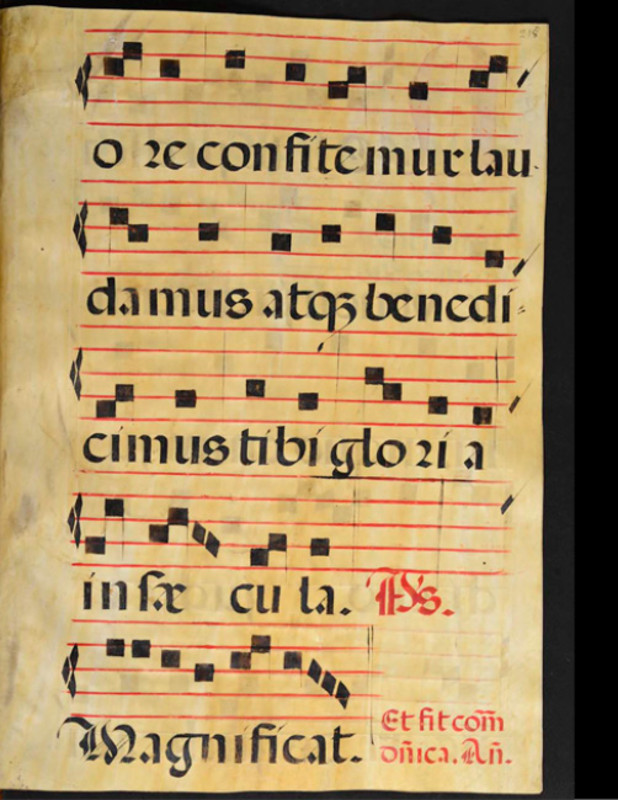 218
o ꝛe confitemur lau
damus atqꝫ benedi⸗
cimus tibi gloꝛi a
in sæ cu la. Ps.
Magnificat.
Et fit com̃
dñica. Añ.